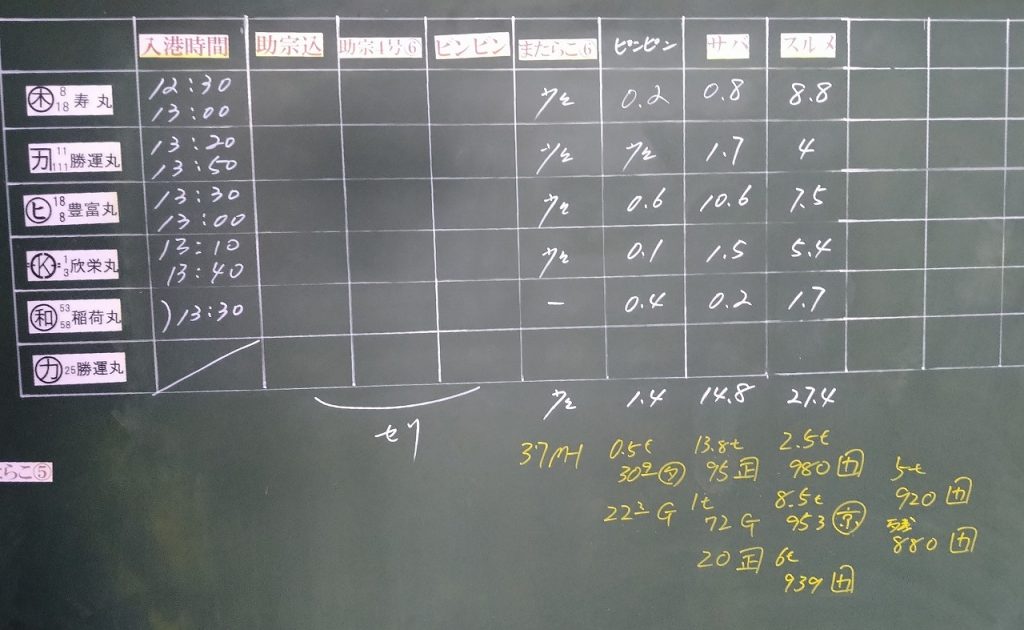 入港時間 助宗込 助宗4号⑥ ピンピン またらこ⑥ ピンピン サバ スルメ
木 8 18 寿丸 12:30 13:00 少々 0.2 0.8 8.8
カ 11 111 勝運丸 13:20 13:50 少々 少々 1.7 4
ヒ 18 8 豊富丸 13:30 13:00 少々 0.6 10.6 7.5
K 1 3 欣栄丸 13:10 13:40 少々 0.1 1.5 5.4
和 53 58 稲荷丸 )13:30 - 0.4 0.2 1.7
カ 25 勝運丸
少々 1.4 14.8 27.4
セリ
らこ⑤
0.5t 13.8t 2.5t
95 正 980 カ 5t
1t 8.5t 920 カ
G 72 G 953 残
20 正 6t 880 カ
939 カ